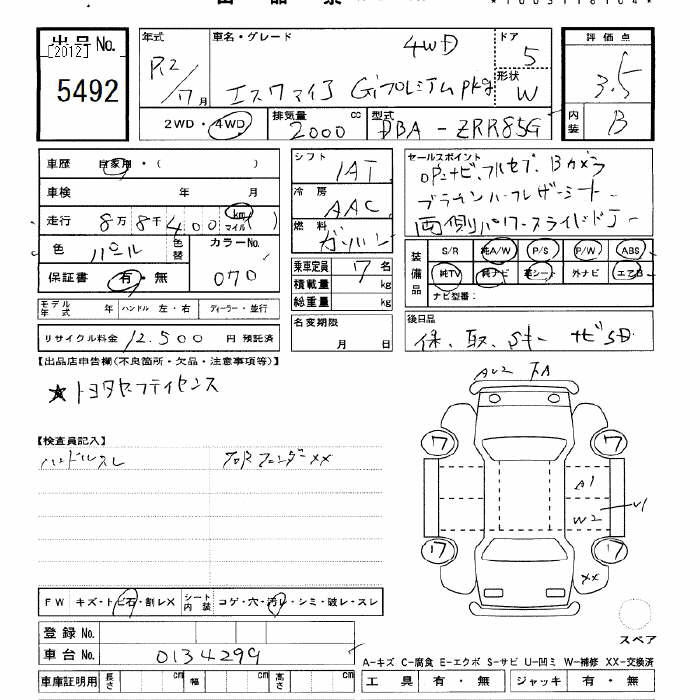 出品No.
[2012]
5492
年式
R2/17月
車名・グレード
4WD
エスクァイア Giプレミアムpkg
ドア
5
形状
W
評価点
3.5
内装
B
2WD・4WD
排気量
2000
cc
型式
DBA-ZRR85G
車歴 自家用・( )
車検 年 月
走行 8万8千400 km マイル ( )
色 パール 色替
カラーNo.
070
保証書 有・無
モデル年式 年 ハンドル 左・右 ディーラー・並行
リサイクル料金 12.500 円 預託済
シフト
IAT
冷房
AAC
燃料
ガソリン
乗車定員 7 名
積載量 kg
総重量 kg
名変期限
月 日
セールスポイント
OPナビ、フルセグ、Bカメラ
ブラインハーフレザーシート
両側パワースライドドアー
装備品
S/R 純A/W P/S P/W ABS
純TV 純ナビ 革シート 外ナビ エアB
ナビ型番:
後日品
保、取、Sキー ナビSD
【出品店申告欄(不良箇所・欠品・注意事項等)】
★トヨタセフティセンス
【検査員記入】
ハンドルスレ
右Rフェンダーxx
AU2
A1
W2
U1
XX
ワ
ワ
ワ
ワ
スペア
FW キズ・トビ石・割レX シート内装 コゲ・穴・汚レ・シミ・破レ・スレ
登録No.
車台No. 0134299
車庫証明用 長さ cm 幅 cm 高さ cm
A-キズ C-腐食 E-エクボ S-サビ U-凹ミ W-補修 XX-交換済
工具 有・無 ジャッキ 有・無